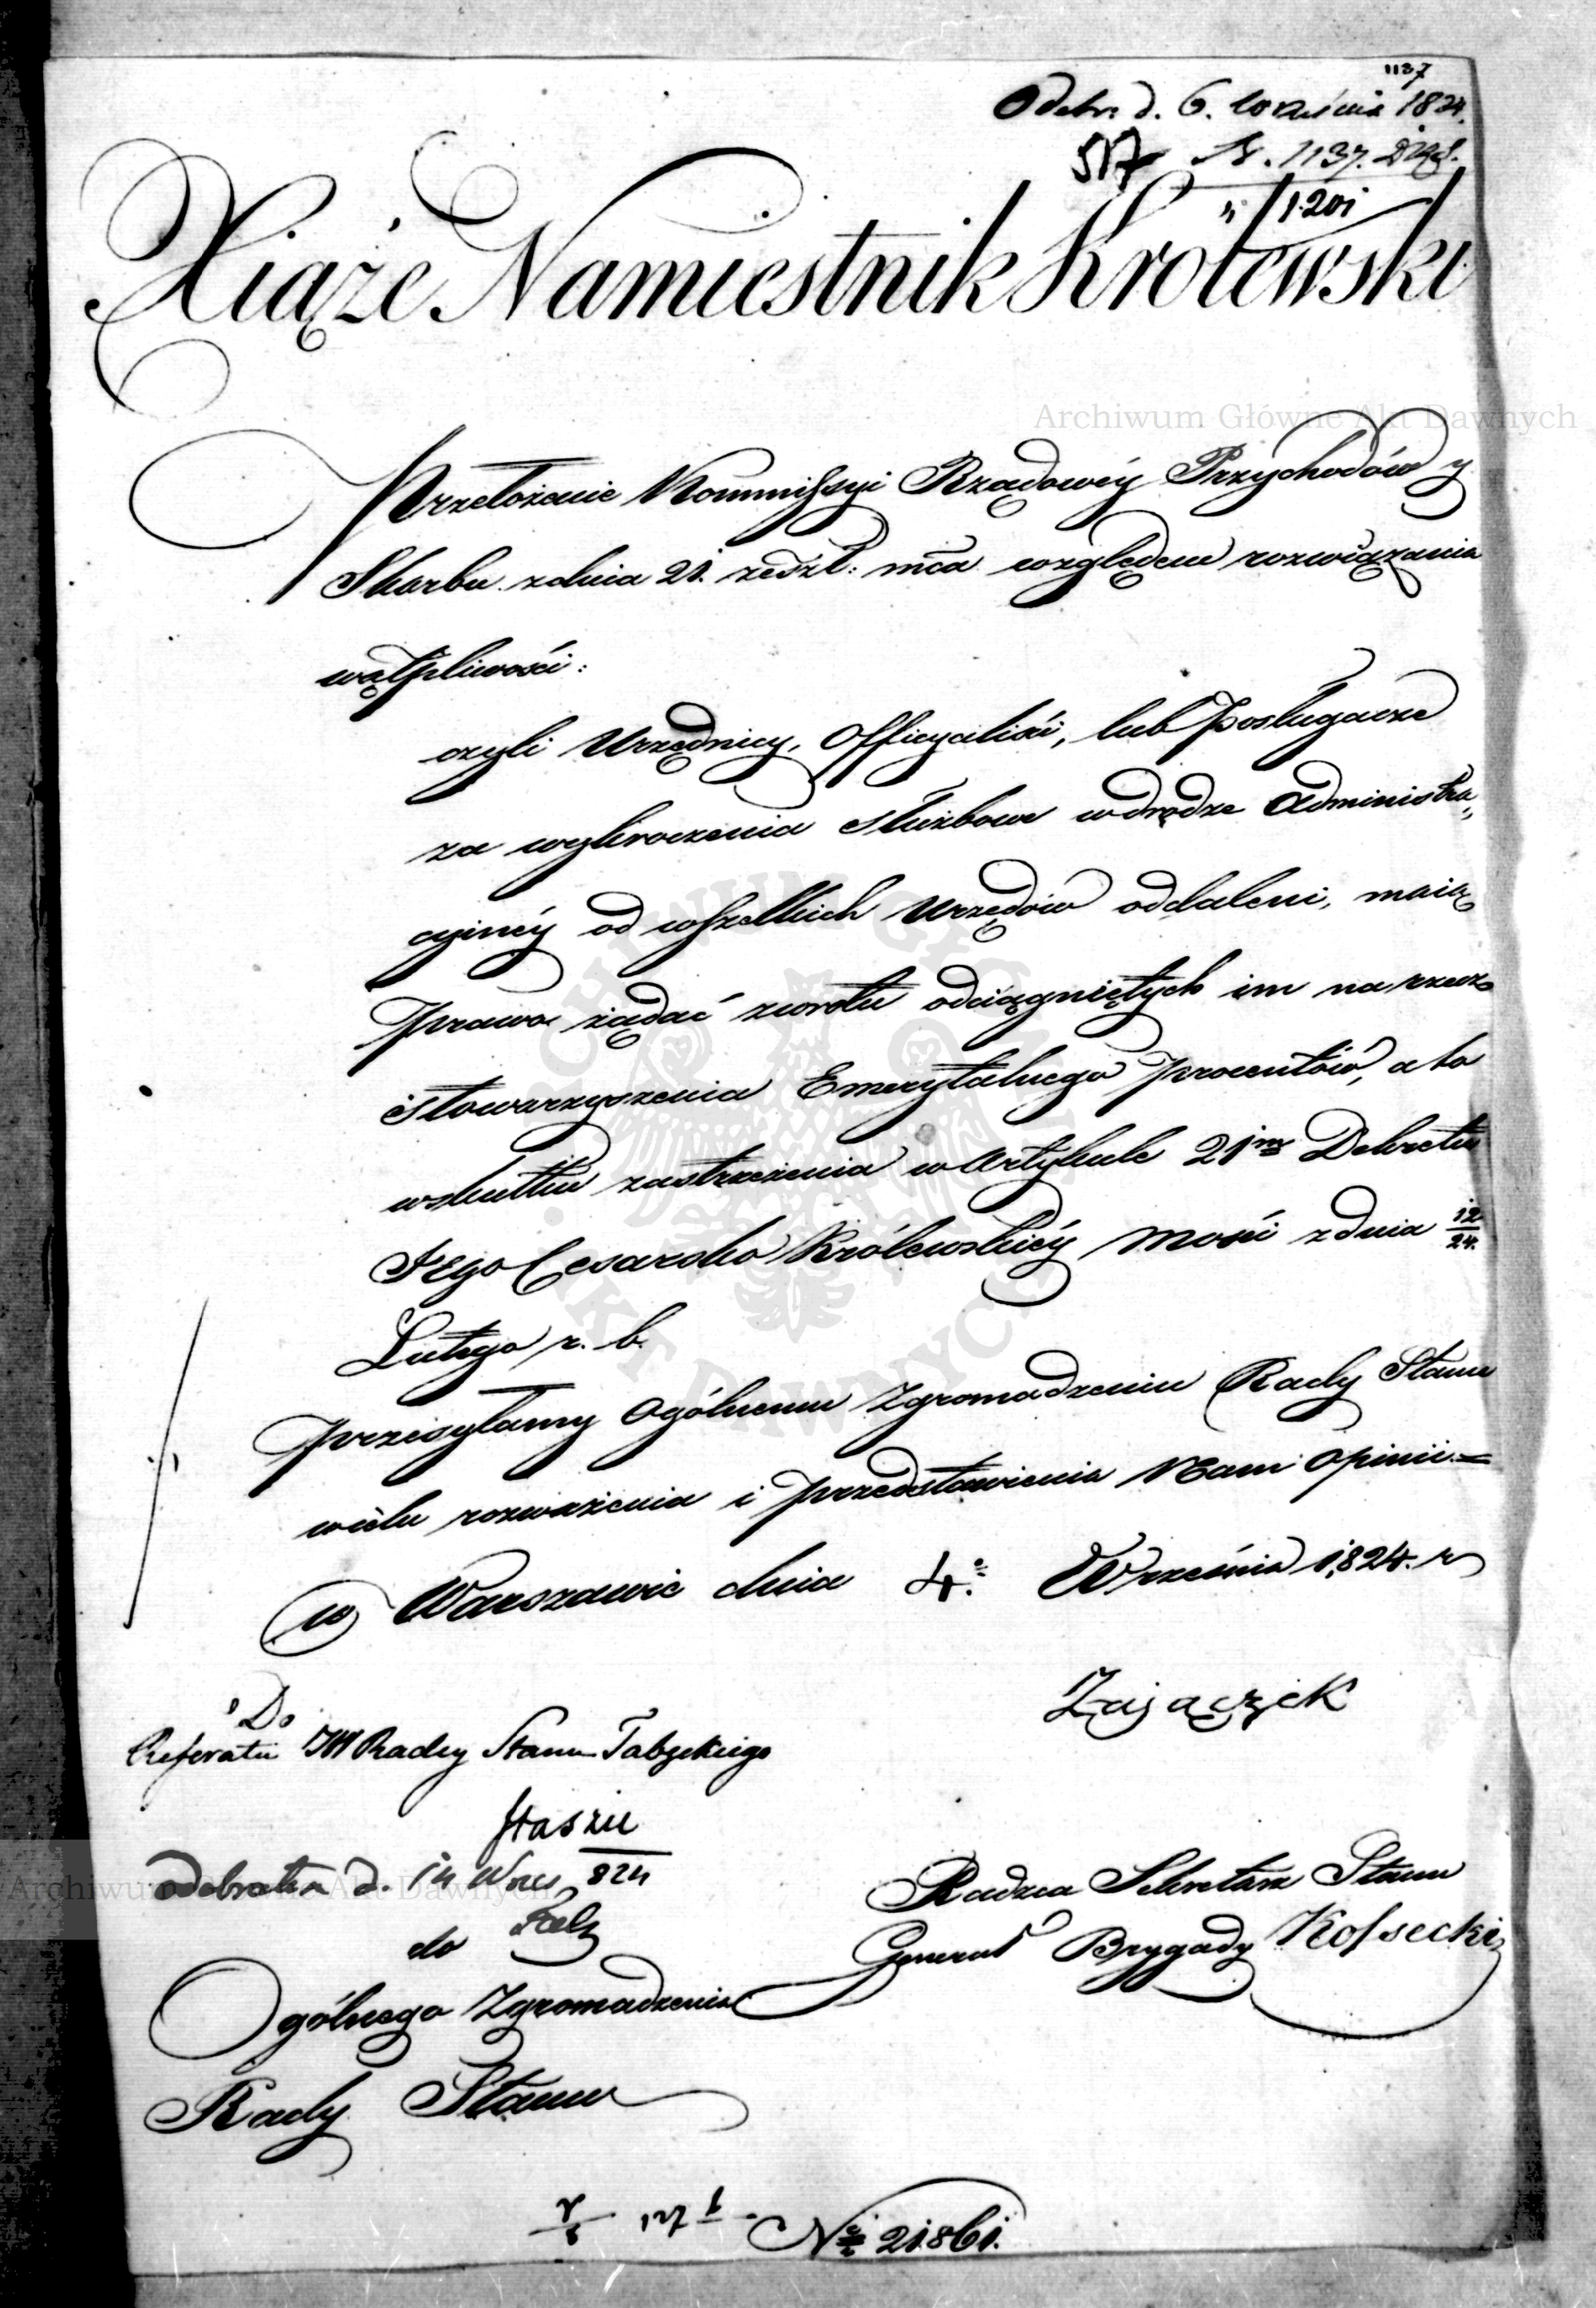 1137
Odebr: d. 6. Września 1824.
517 N. 1137. Dzgł.
Xiąże Namiestnik Królewski
Archiwum Główne Akt Dawnych
Przełożenie Kommissyi Rządowéy Przychodów y
Skarbu z dnia 21. zeszł: mca względem rozwiązania
wątpliwości:
czyli Urzędnicy, Officyaliści, lub Posługacze
za wykroczenia służbowe w drodze Administra„
cyinéy od wszelkich Urzędów oddaleni, maią
prawo żądać zwrotu odciągniętych im na rzecz
stowarzyszenia Emerytalnego procentów, a to
wskutku zastrzeżenia w Artykule 21m Dekretu
Jego Cesarsko Królewskiéy Mości z dnia 12/24.
Lutego r. b.
przesyłamy Ogólnemu Zgromadzeniu Rady Stanu
w celu rozważenia i przedstawienia Nam opinii.=
w Warszawie dnia 4. Września 1824. r
Zajączek
Do
Referatu JW Radcy Stanu Tabęckiego
Staszic
odebrałem d. 14 Wrześ 824
Radzca Sekretarz Stanu
Generał Brygady Kossecki
do
Ogólnego Zgromadzenia
Rady Stanu
No 21861.